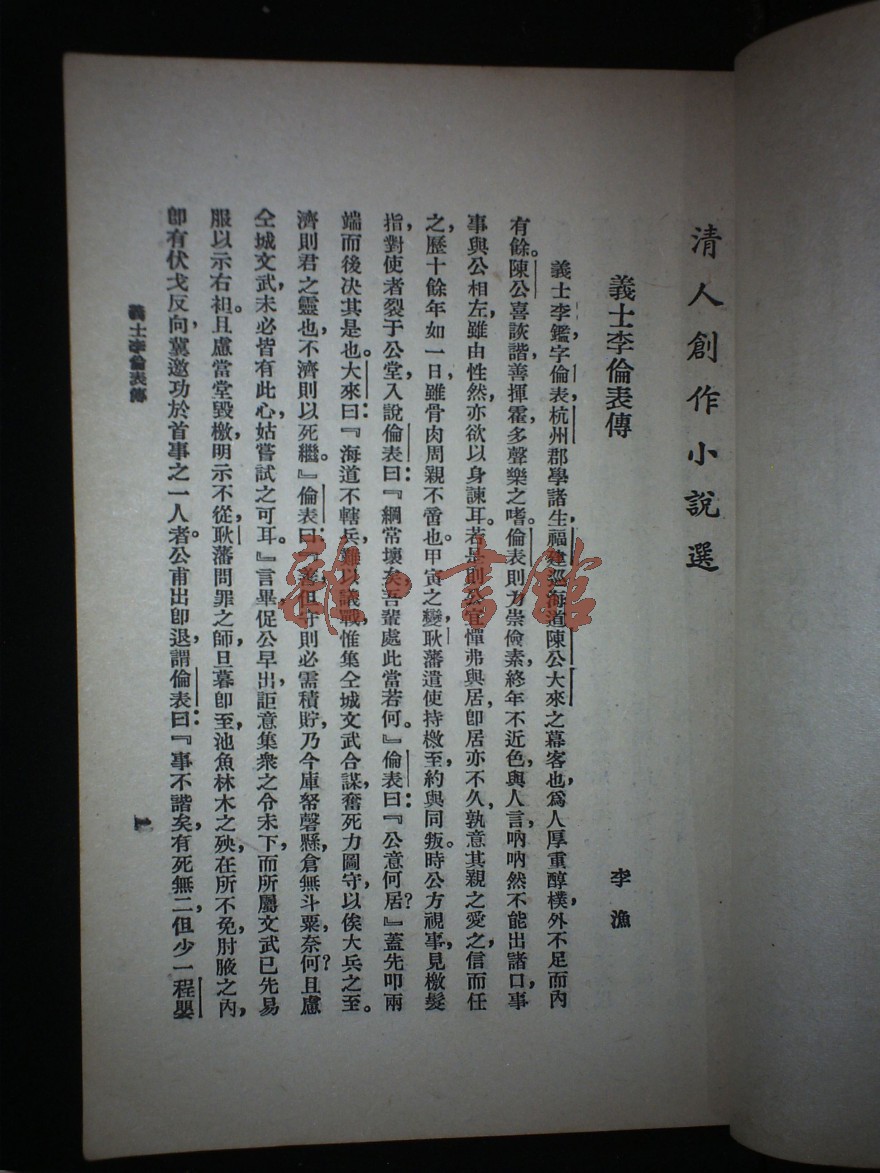 清人創作小說選
義士李倫表傳
李漁
義士李鑑,字倫表,杭州郡學諸生,福建巡海道陳公大來之幕客也,爲人厚重醇樸,外不足而內
有餘。陳公喜詼諧,善揮霍,多聲樂之嗜。倫表則力崇儉素,終年不近色,與人言,吶吶然不能出諸口,事
事與公相左,雖由性然,亦欲以身諫耳。若是則公宜憚弗與居,卽居亦不久,孰意其親之愛之,信而任
之,歷十餘年如一日,雖骨肉周親不啻也。甲寅之變,耿藩遣使持檄至,約與同叛。時公方視事,見檄髮
指,對使者裂于公堂,入說倫表曰:『綱常壞矣,吾輩處此當若何。』倫表曰:『公意何居?』蓋先叩兩
端而後決其是也。大來曰:『海道不轄兵,難以議戰,惟集仝城文武合謀,奮死力圖守,以俟大兵之至。
濟則君之靈也,不濟則以死繼。』倫表曰:『善,但守則必需積貯,乃今庫帑罄懸,倉無斗粟,奈何?且慮
仝城文武,未必皆有此心,姑嘗試之可耳。』言畢,促公早出,詎意集衆之令未下,而所屬文武已先易
服以示右袒。且慮當堂毀檄,明示不從,耿藩問罪之師,旦暮卽至,池魚林木之殃,在所不免,肘腋之內,
卽有伏戈反向,冀邀功於首事之一人者。公甫出卽退,謂倫表曰:『事不諧矣,有死無二,但少一程嬰
義士李倫表傳
一
雜·書館